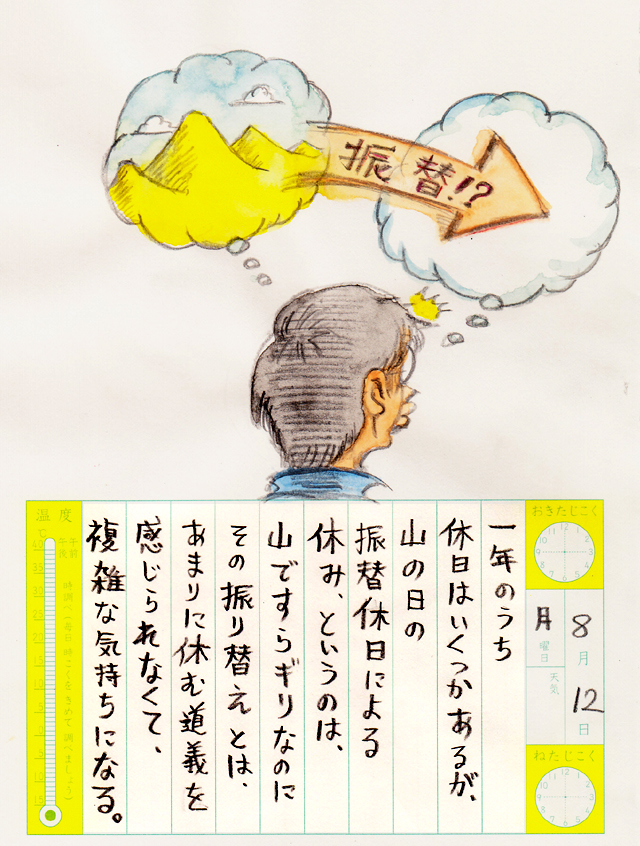 振替!?
おきたじこく
8月
12日
月曜日
天気
ねたじこく
一年のうち
休日はいくつかあるが、
山の日の
振替休日による
休み、というのは、
山ですらギリなのに
その振り替えとは、
あまりに休む道義を
感じられなくて、
複雑な気持ちになる。
温度
℃
午前
午後
時調べ(毎日 時こくをきめて 調べましょう)